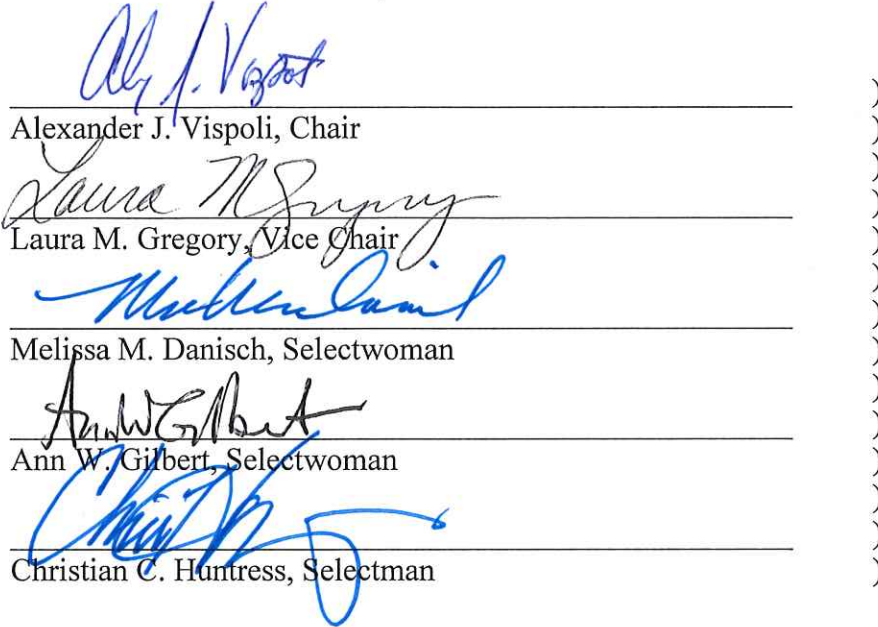 )
Alexander J. Vispoli, Chair )
Laura M Gregory )
)
Laura M. Gregory, Vice Chair )
)
)
Melissa M. Danisch, Selectwoman )
Ann W Gilbert )
)
Ann W. Gilbert, Selectwoman )
)
)
Christian C. Huntress, Selectman )